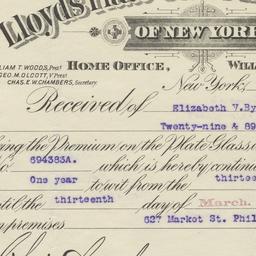 Lloyds Plate
OF NEW YORK
LIAM T. WOODS, Prest
GEO. M. OLCOTT, V. Prest
CHAS. E. W. CHAMBERS, Secretary.
HOME OFFICE, WILL
New York,
Received of Elizabeth V. By
Twenty-nine & 89
ing the Premium on the Plate Glass
694383A. which is hereby continu
One year to wit from the thirtee
ntil the thirteenth day of March.
premises 627 Market St. Phil